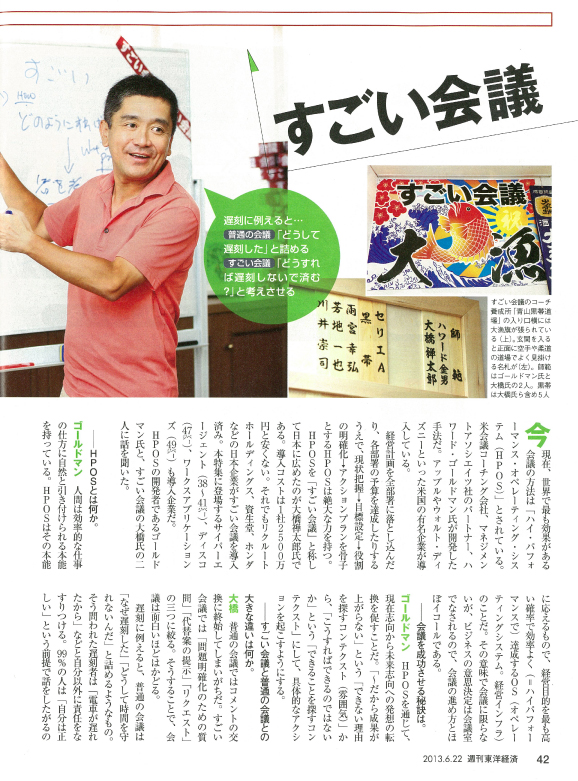 すごい会議
すごい
HOW
どのように
遅刻に例えると…
普通の会議「どうして
遅刻した」と詰める
すごい会議「どうすれ
ば遅刻しないで済む
?」と考えさせる
すごい会議
祝
大漁
師範
ハワード金男
大橋禅太郎
黒帯
セリエA
雨宮幸弘
芳地一也
川井崇司
すごい会議のコーチ
養成所「青山黒帯道
場」の入り口横には
大漁旗が張られてい
る(上)。玄関を入る
と正面に空手や柔道
の道場でよく見掛け
る名札が(左)。師範
はゴールドマン氏と
大橋氏の2人。黒帯
は大橋氏ら含め5人
今
現在、世界で最も効果がある
会議の方法は、「ハイ・パフォ
ーマンス・オペレーティング・シス
テム(HPOS)」とされている。
米会議コーチング会社、マネジメン
トアソシエイツ社のパートナー、ハ
ワード・ゴールドマン氏が開発した
手法だ。アップルやウォルト・ディ
ズニーといった米国の有名企業が導
入している。
経営計画を全部署に落とし込んだ
り、各部署の予算を達成したりする
うえで、現状把握→目標設定→役割
の明確化→アクションプランを骨子
とするHPOSは絶大な力を持つ。
HPOSを「すごい会議」と称し
て日本に広めたのが大橋禅太郎氏で
ある。導入コストは1社2500万
円と安くない。それでもリクルート
ホールディングス、資生堂、ホンダ
などの日本企業がすごい会議を導入
済み。本特集に登場するサイバーエ
ージェント(38〜41㌻)、ディスコ
(47㌻)、ワークスアプリケーション
ズ(49㌻)も導入企業だ。
HPOSの開発者であるゴールド
マン氏と、すごい会議の大橋氏の二
人に話を聞いた。
──HPOSとは何か。
ゴールドマン 人間は効率的な仕事
の仕方に自然と引き付けられる本能
を持っている。HPOSはその本能
に応えるもので、経営目的を最も高
い確率で効率よく(=ハイパフォー
マンスで)達成するOS(オペレー
ティングシステム。経営インフラ)
のことだ。その意味で会議に限らな
いが、ビジネスの意思決定は会議室
でなされるので、会議の進め方とほ
ぼイコールである。
──会議を成功させる秘訣は。
ゴールドマン HPOSを通じて、
現在志向から未来志向への発想の転
換を促すことだ。「だから成果が
上がらない」という「できない理由
を探すコンテクスト(雰囲気)」か
ら、「こうすればできるのではない
か」という「できることを探すコン
テクスト」にして、具体的なアクシ
ョンを起こすようにする。
──すごい会議と普通の会議との
大きな違いは何か。
大橋 普通の会議ではコメントの交
換に終始してしまいがちだ。すごい
会議では「問題明確化のための質
問」「代替案の提示」「リクエスト」
の三つに絞る。そうすることで、会
議は面白いほどはかどる。
遅刻に例えると、普通の会議は
「なぜ遅刻した」「どうして時間を守
れないんだ」と詰めるようなもの。
そう問われた遅刻者は「電車が遅れ
たから」などと自分以外に責任をな
すりつける。99%の人は「自分は正
しい」という前提で話をしたがる。
2013.6.22 週刊東洋経済 42